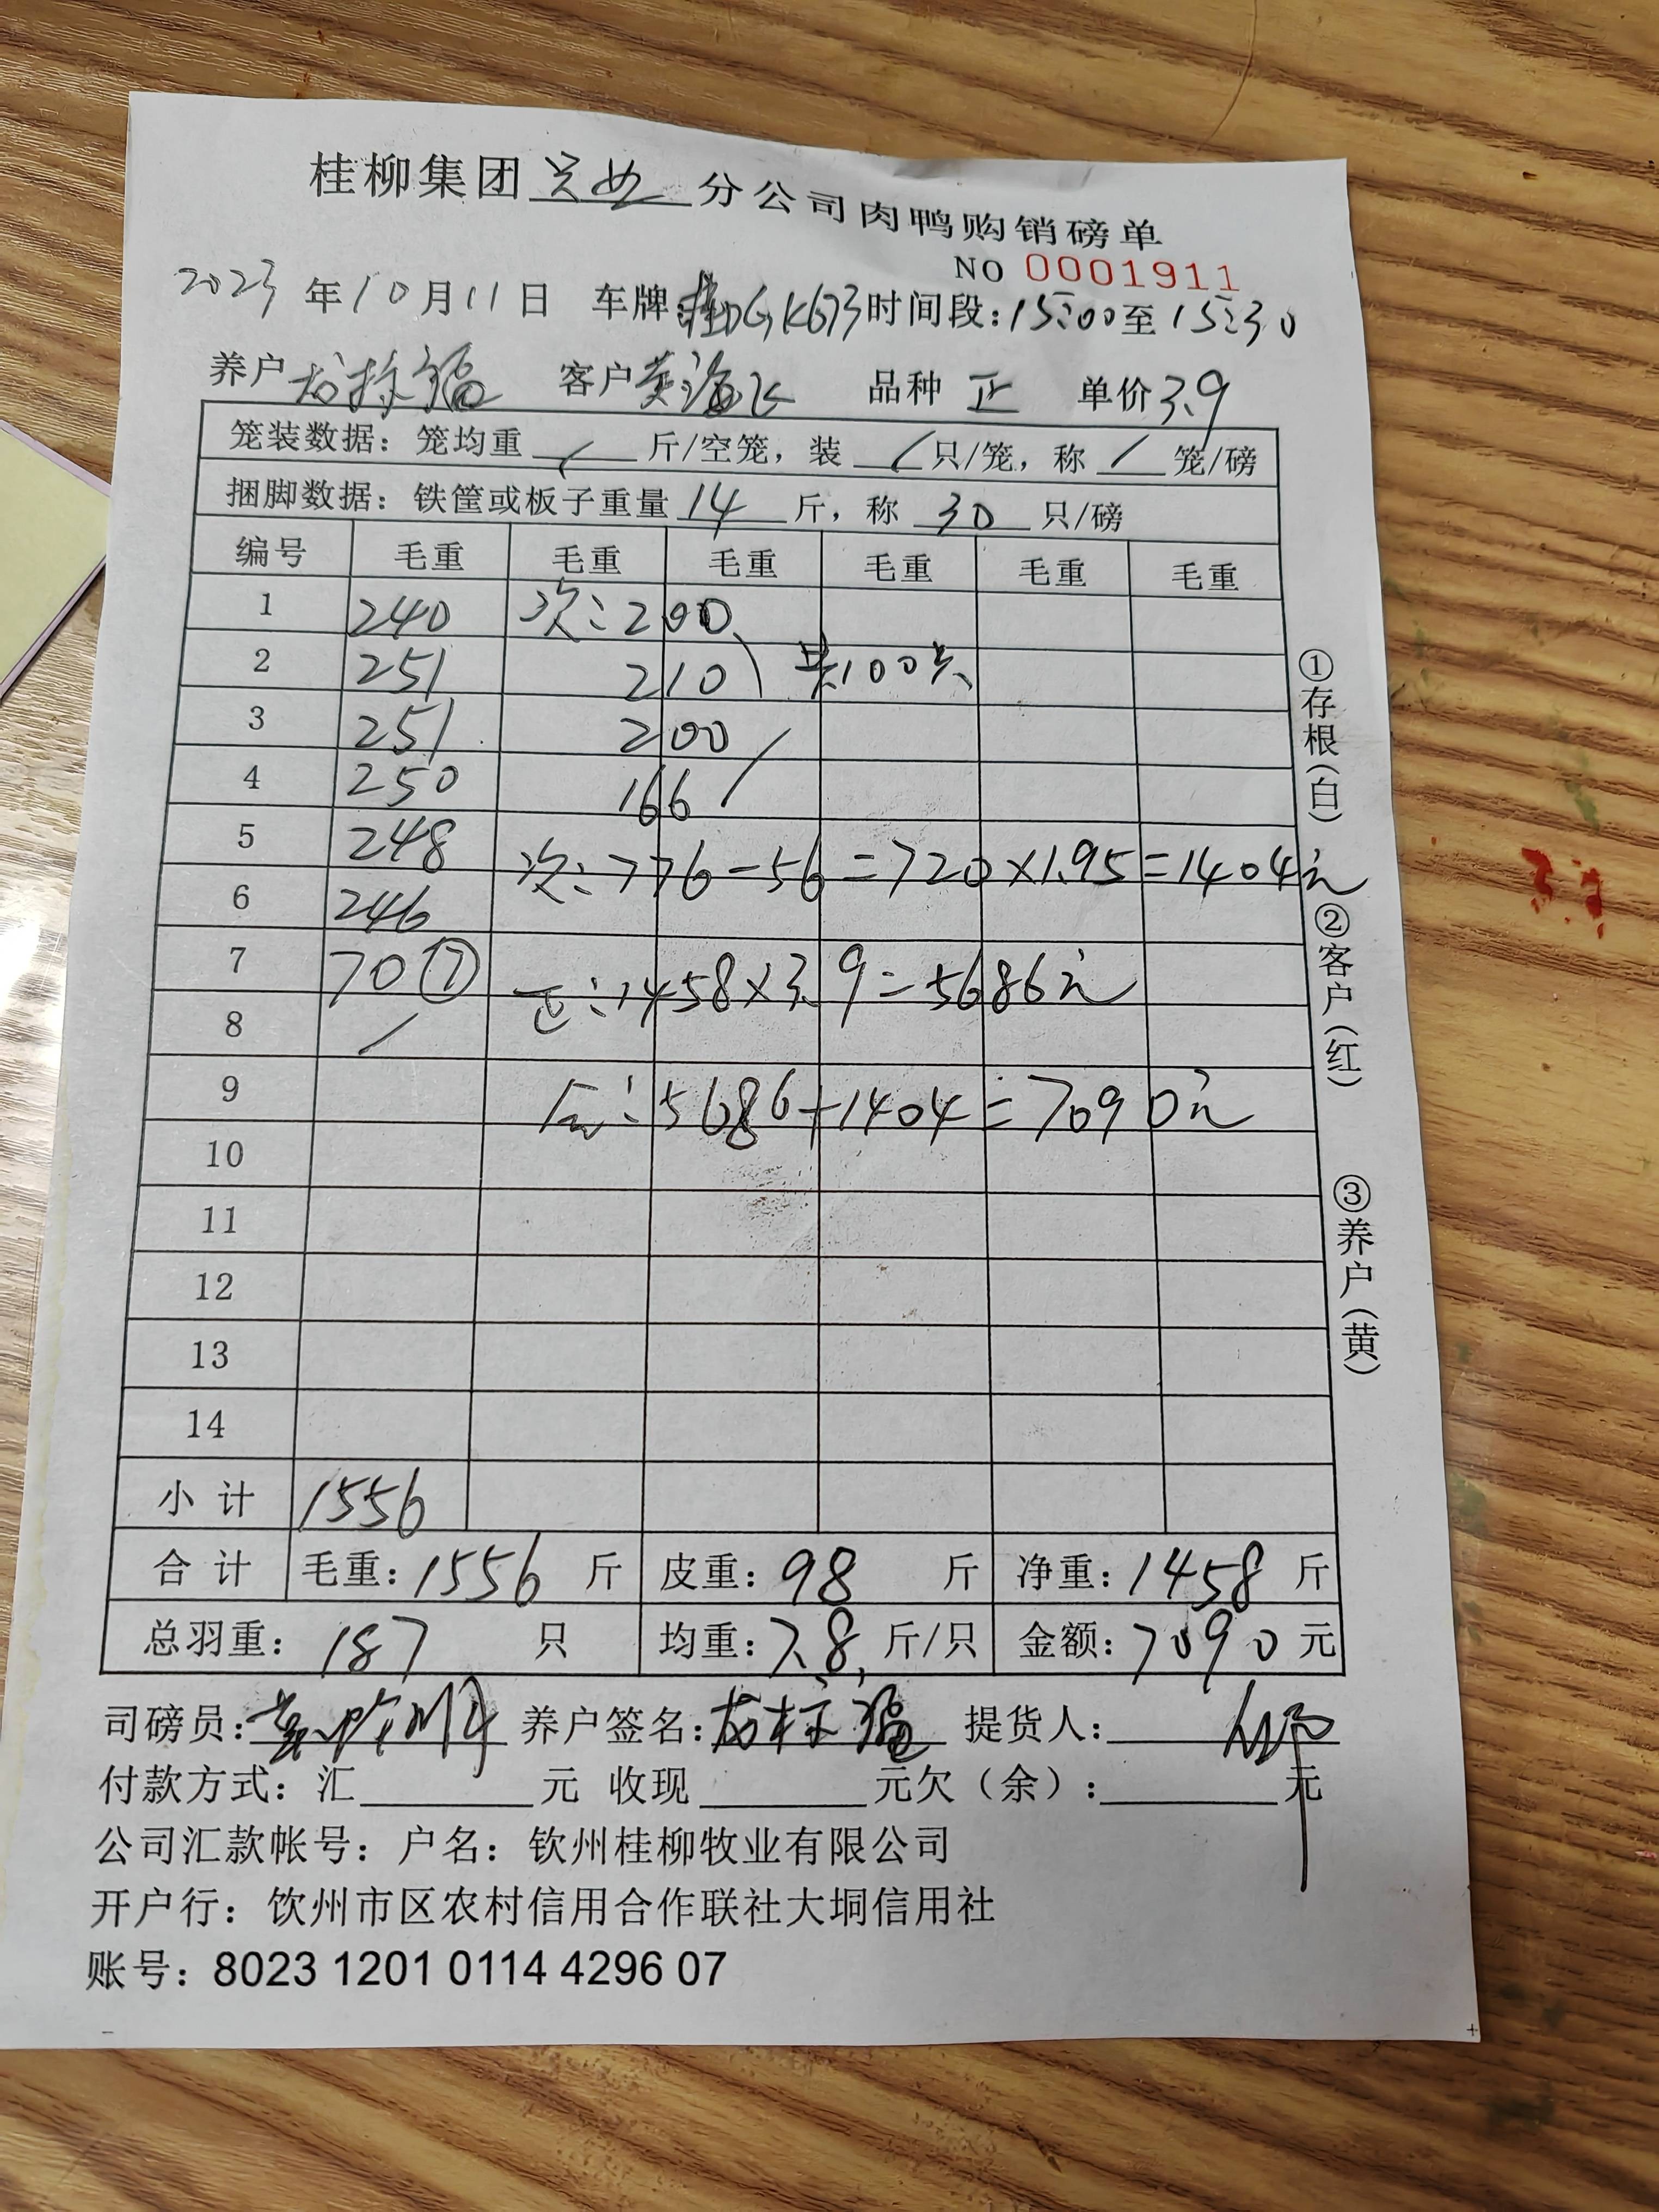 桂柳集团 分公司肉鸭购销磅单
NO 0001911
2023年10月11日 车牌:桂DGK673 时间段:15:00至15:30
养户 客户黄海飞 品种 正 单价3.9
笼装数据:笼均重 / 斤/空笼,装 / 只/笼,称 / 笼/磅
捆脚数据:铁筐或板子重量 14 斤,称 30 只/磅
编号 毛重 毛重 毛重 毛重 毛重 毛重
1 240 次:200
2 251 210 共100只
3 251 200
4 250 166
5 248 次:776-56=720×1.95=1404元
6 246
7 70⑦ 正:1458×3.9=5686元
8 /
9 5686+1404=7090元
10
11
12
13
14
小计 1556
合计 毛重:1556 斤 皮重:98 斤 净重:1458 斤
总羽重:187 只 均重:7.8 斤/只 金额:7090 元
司磅员: 养户签名: 提货人:
付款方式:汇 元 收现 元欠(余): 元
公司汇款帐号:户名:钦州桂柳牧业有限公司
开户行:饮州市区农村信用合作联社大垌信用社
账号:8023 1201 0114 4296 07
①存根(白)
②客户(红)
③养户(黄)